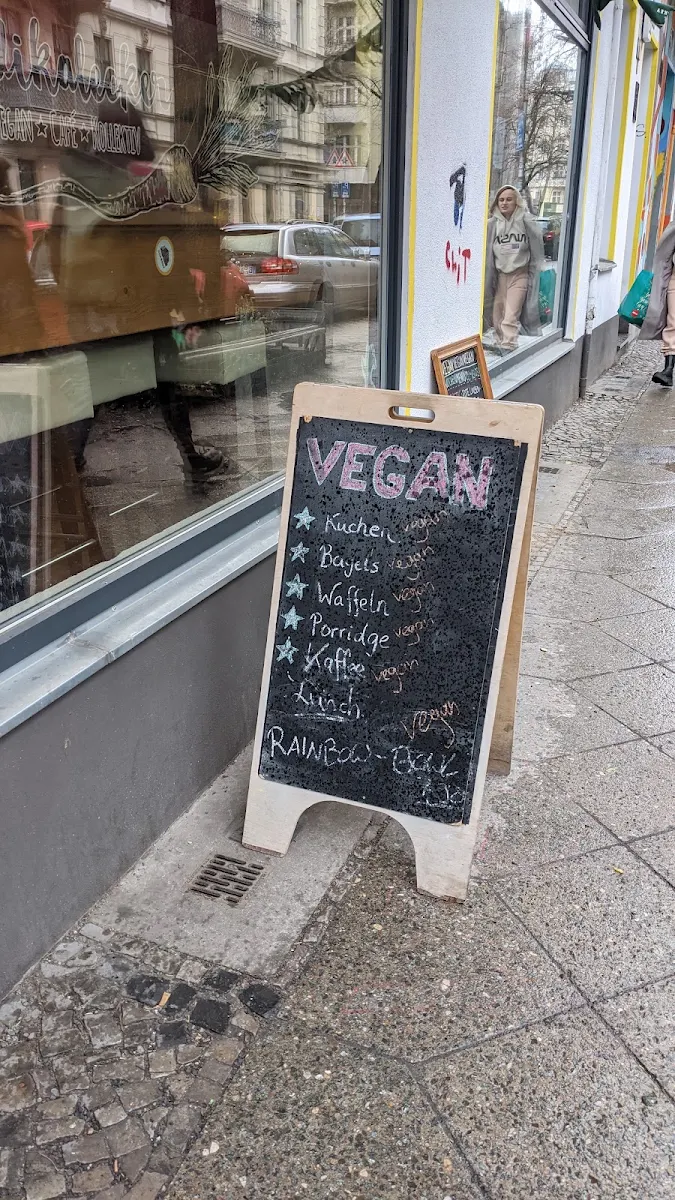 VEGAN ★ CAFÉ ★ KOLLEKTIV
VEGAN
★ Kuchen vegan
★ Bagels vegan
★ Waffeln vegan
★ Porridge vegan
★ Kaffee vegan
Lunch
vegan
RAINBOW - BOWL